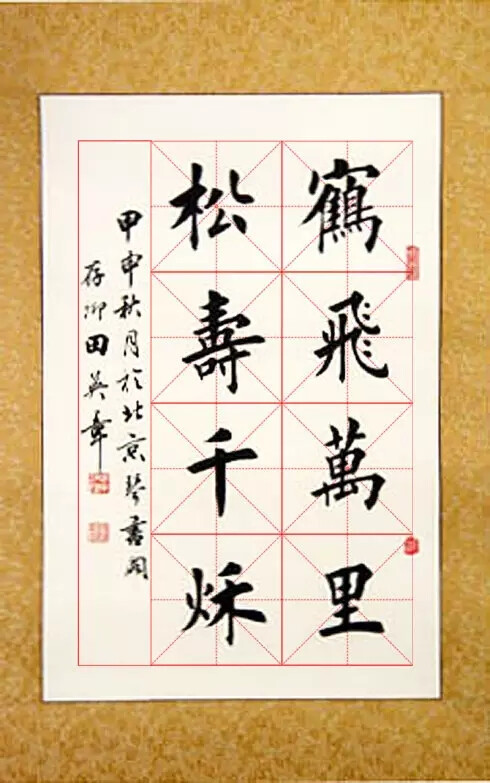 鶴飛萬里
松壽千秌
甲申秋月於北京琴書閣
存卿田英章